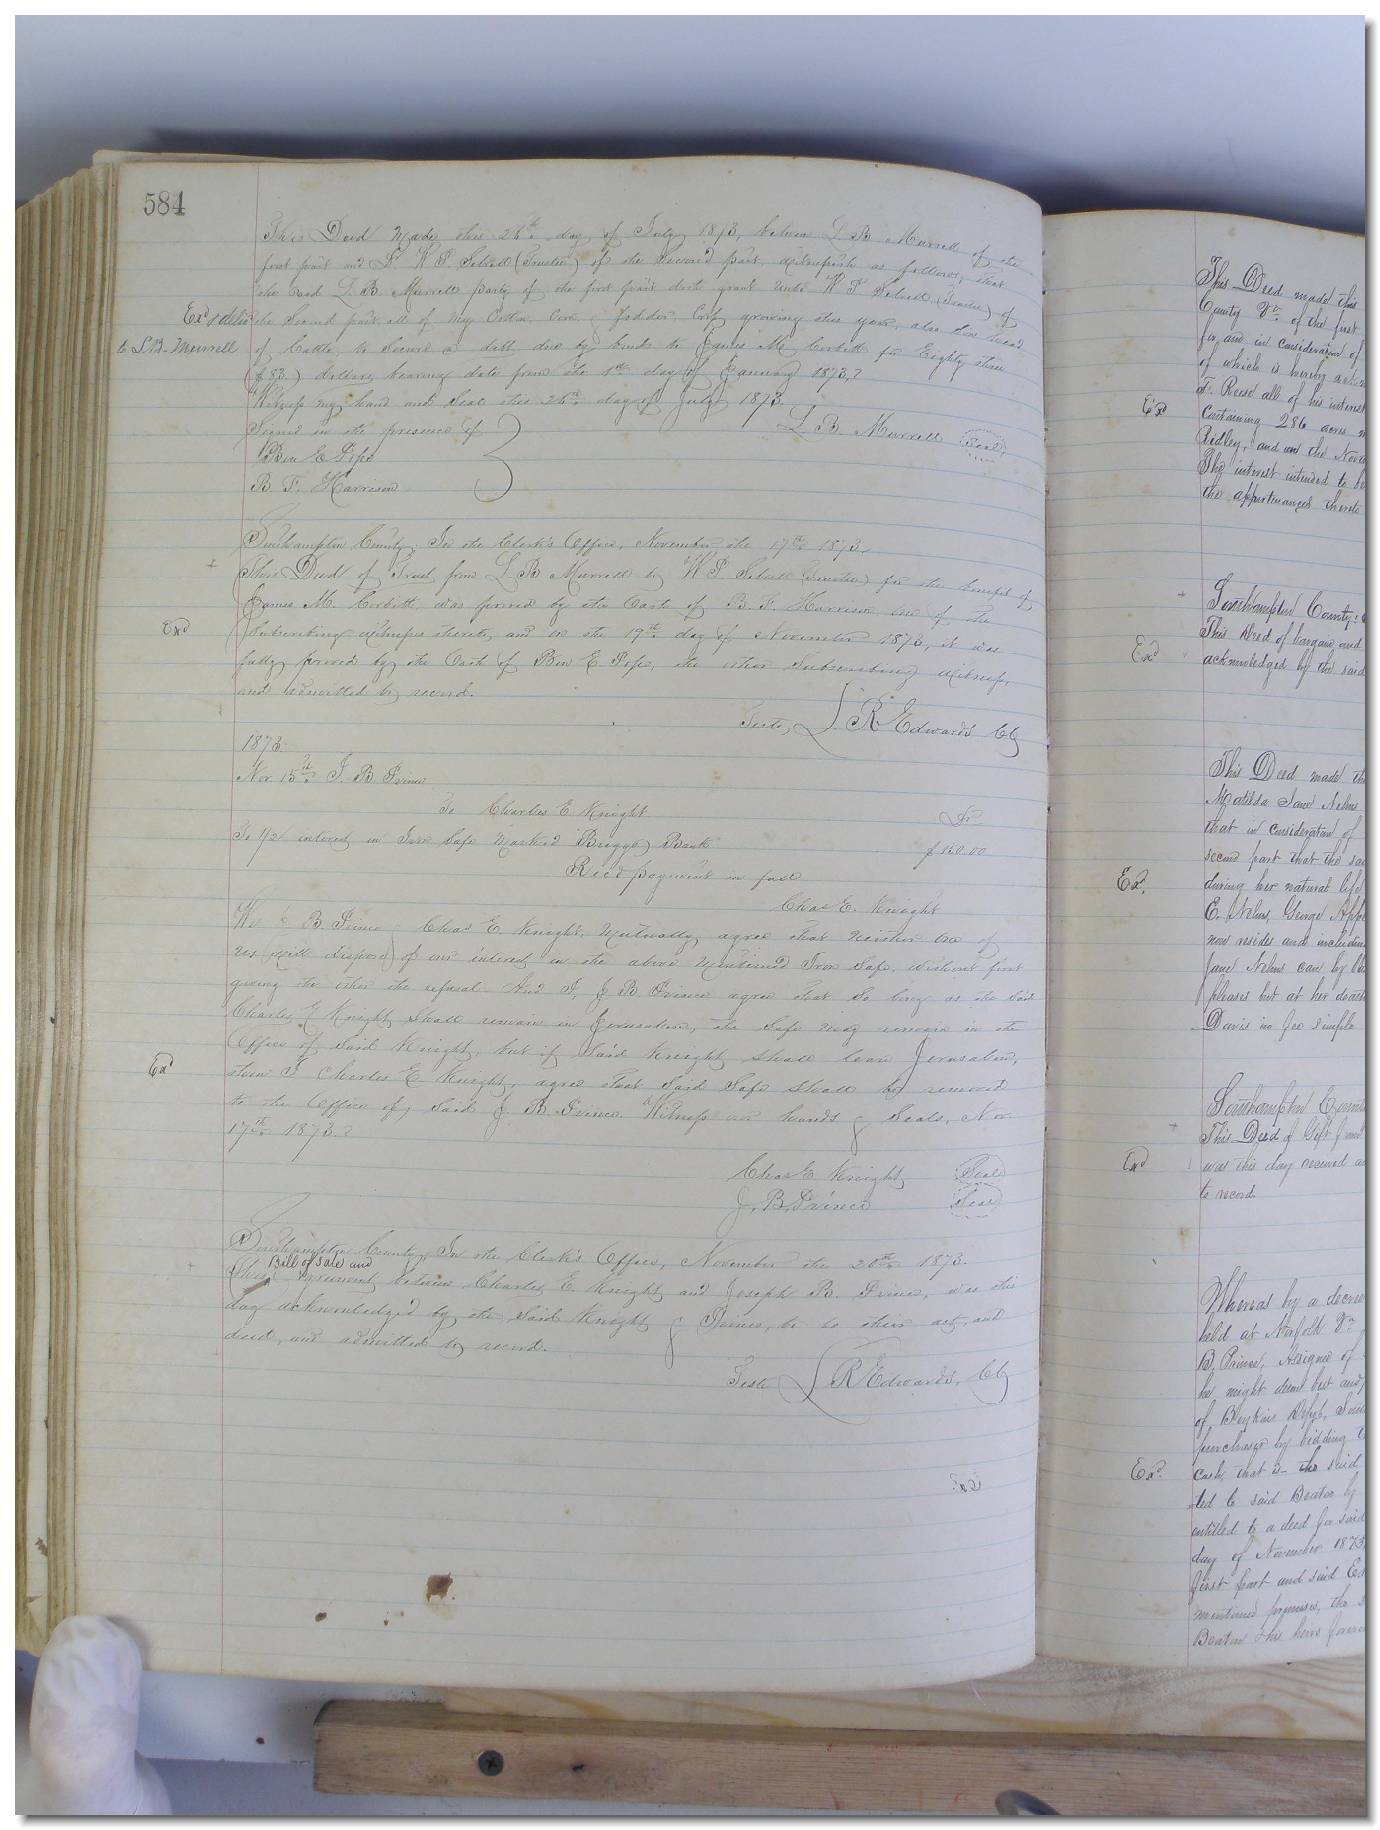 584
This Deed made this 26th day of July 1873, between L B Murrell of the
first part and W P Sebrell (Trustee) of the Second part, witnesseth as follows, that
the said L. B. Murrell party of the first part doth grant unto W P Sebrell (Trustee) of
Exd & deliv the Second part all of my Cotton Corn & fodder Crop growing this year, also head
to L B. Murrell of Cattle, to Secure a debt due by bond to James M Corbitt for Eighty three
($83.) dollars, bearing date from the 1st day of January 1873,
Witness my hand and Seal this 26th day of July 1873
Signed in the presence of L B. Murrell Seal
Ben E Pope
B. F. Harrison
Southampton County: In the Clerk's Office, November the 17th 1873,
This Deed of Trust from L B Murrell to W P Sebrell (Trustee) for the benefit of
James M. Corbitt, was proved by the Oath of B. F. Harrison one of the
Exd Subscribing witnesses thereto, and on the 19th day of November 1873, it was
fully proved by the Oath of Ben E Pope, the other Subscribing witness,
and admitted to record.
Teste, L. R. Edwards CC
1873.
Nov 15th J. B Prince
To Charles E Knight Dr
To 1/2 interest in Iron Safe marked Briggs Bank $150.00
Recd payment in full
Chas E. Knight
We J B Prince & Chas E. Knight, mutually agree that neither one of
us will dispose of our interest in the above mentioned Iron Safe, without first
giving the other the refusal. And I, J B Prince agree that so long as the said
Charles E Knight Shall remain in Jerusalem, the Safe may remain in the
Office of said Knight, but if Said Knight shall leave Jerusalem,
Exd then I Charles E Knight, agree that Said Safe Shall be removed
to the Office of, Said J. B. Prince. Witness our hands & Seals, Nov.
17th 1873.
Chas E Knight Seal
J. B. Prince Seal
Southampton County, In the Clerk's Office, November the 20th 1873.
Bill of Sale and
This agreement between Charles E. Knight and Joseph B. Prince, was this
day acknowledged by the Said Knight & Prince, to be their act, and
deed, and admitted to record.
Teste L R Edwards, CC
Exd
This Deed made this
County Va of the first
for and in consideration of
of which is hereby
T. Reese all of his interest
Exd Containing 286 acres
Ridley, and on the North
The interest intended to be
the appurtenances thereto
Southampton County:
This Deed of bargain and
Exd acknowledged by the said
This Deed made
Matilda Jane Nelms
that in consideration of
second part that the said
Exd. during her natural life
E. Nelms, George
now resides and including
Jane Nelms can by
pleases but at her death
Davis in fee simple
Southampton
This Deed of Gift from
Exd was this day received
to record
Whereas by a decree
held at Norfolk Va
B. Prince, Assignee of
he might deem best and
of Boykins Depot,
purchaser by bidding
Exd. Cash, that is the said
ted to said Beaton by
entitled to a deed for said
day of November 1873,
first part and said
mentioned premises, the
Beaton his heirs